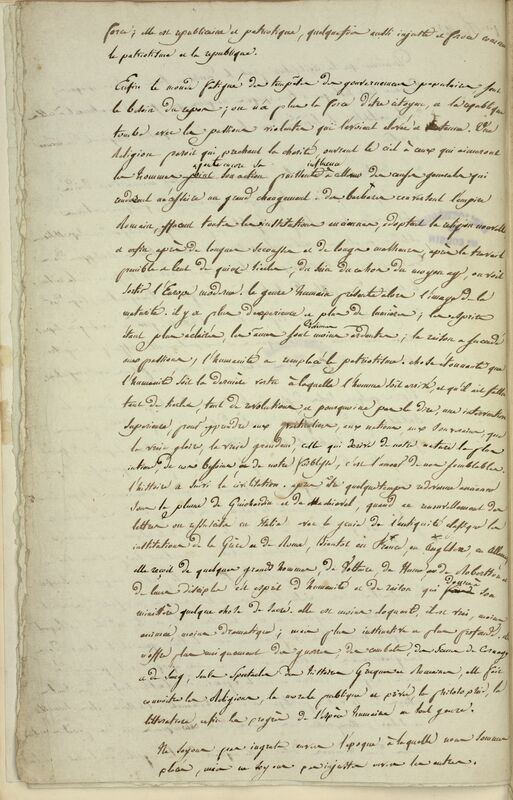 force; elle est républicaine et patriotique, quelquefois aussi injuste et féroce comme
le patriotisme et la république.
Enfin le monde fatigué des tempêtes des gouvernemens populaires sent
le besoin du repos; on n'a plus la force d'être citoyen, et la république
tombe avec les passions violentes qui l'avaient élevée et soutenue. Une
Religion paroit qui prêchant la charité, ouvrant le ciel à ceux qui aimeront
les hommes ajoute encore son influence
son action puissante à celle des causes générales qui
rendent nécessaire un grand changement: des barbares renversent l'empire
Romain, effacent toutes les institutions anciennes, adoptent la religion nouvelle
et enfin après de longues secousses et de longs malheurs, après le travail
pénible et lent de quinze siècles, du sein du cahos du moyen age, on voit
sortir l'Europe moderne. le genre humain présente alors l'image de la
maturité. il y a plus d'expérience et plus de lumières; les esprits
étant plus éclairés, les ames sont moins ardentes; la raison a succédé
aux passions; l'humanité a remplacé le patriotisme. chose étonnante que
l'humanité soit la dernière vertu à laquelle l'homme soit arrivé et qu'il ait fallu
tant de siècles, tant de révolutions et pourquoi ne pas le dire, une intervention
supérieure pour apprendre aux particuliers, aux nations, aux souverains, que
la vraie gloire, la vraie grandeur, celle qui dérive de notre nature la plus
intime, de nos besoins et de notre foiblesse, c'est l'amour de nos semblables.
l'histoire a suivi la civilisation. après être quelque tems redevenue ancienne
sous la plume de Guichardin et de Machiavel, quand au renouvellement des
lettres on ressuscita en Italie avec le génie de l'antiquité classique les
institutions de la Grèce et de Rome, Bientot en France, en Angleterre, en Allemagne
elle reçoit de quelques grands hommes, de Voltaire de Hume et de Robertson et
de leurs disciples cet esprit d'humanité et de raison qui donne à son
ministère quelque chose de sacré. elle est moins éloquente, il est vrai, moins
animée, moins dramatique; mais plus instructive et plus profonde. elle
n'offre plus uniquement des guerres, des combats, des scènes de carnage
et de sang, seuls spectacles des histoires Grecques et Romaines, elle fait
connoitre les Religions, la morale publique et privée, la philosophie, la
littérature, enfin les progrès de l'espèce humaine en tout genre.
Ne soyons pas ingrats envers l'époque à laquelle nous sommes
placés, mais ne soyons pas injustes envers les autres.